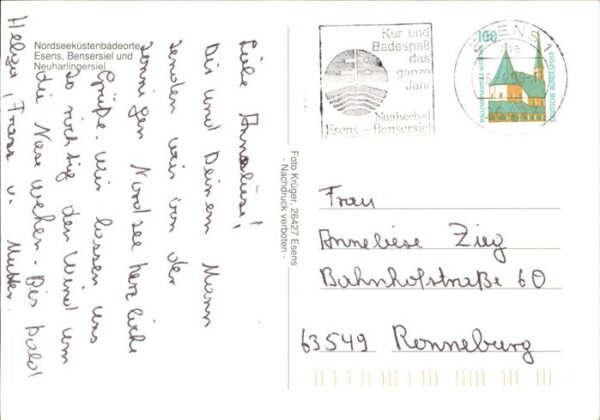 Nordseeküstenbadeorte
Esens, Bensersiel und
Neuharlingersiel
Liebe Anneliese!
Dir und Deinem Mann
senden wir von der
sonnigen Nordsee herzliche
Grüße. Wir lassen uns
so richtig den Wind um
die Nase wehen. Bis bald
Helga, Franz u. Mutter.
Foto Krüger, 26427 Esens
- Nachdruck verboten -
Kur und
Badespaß
das
ganze
Jahr
Nordseebad
Esens - Bensersiel
ESENS 1
100
DEUTSCHE BUNDESPOST
Frau
Anneliese Zieg
Bahnhofstraße 60
63549 Ronneburg